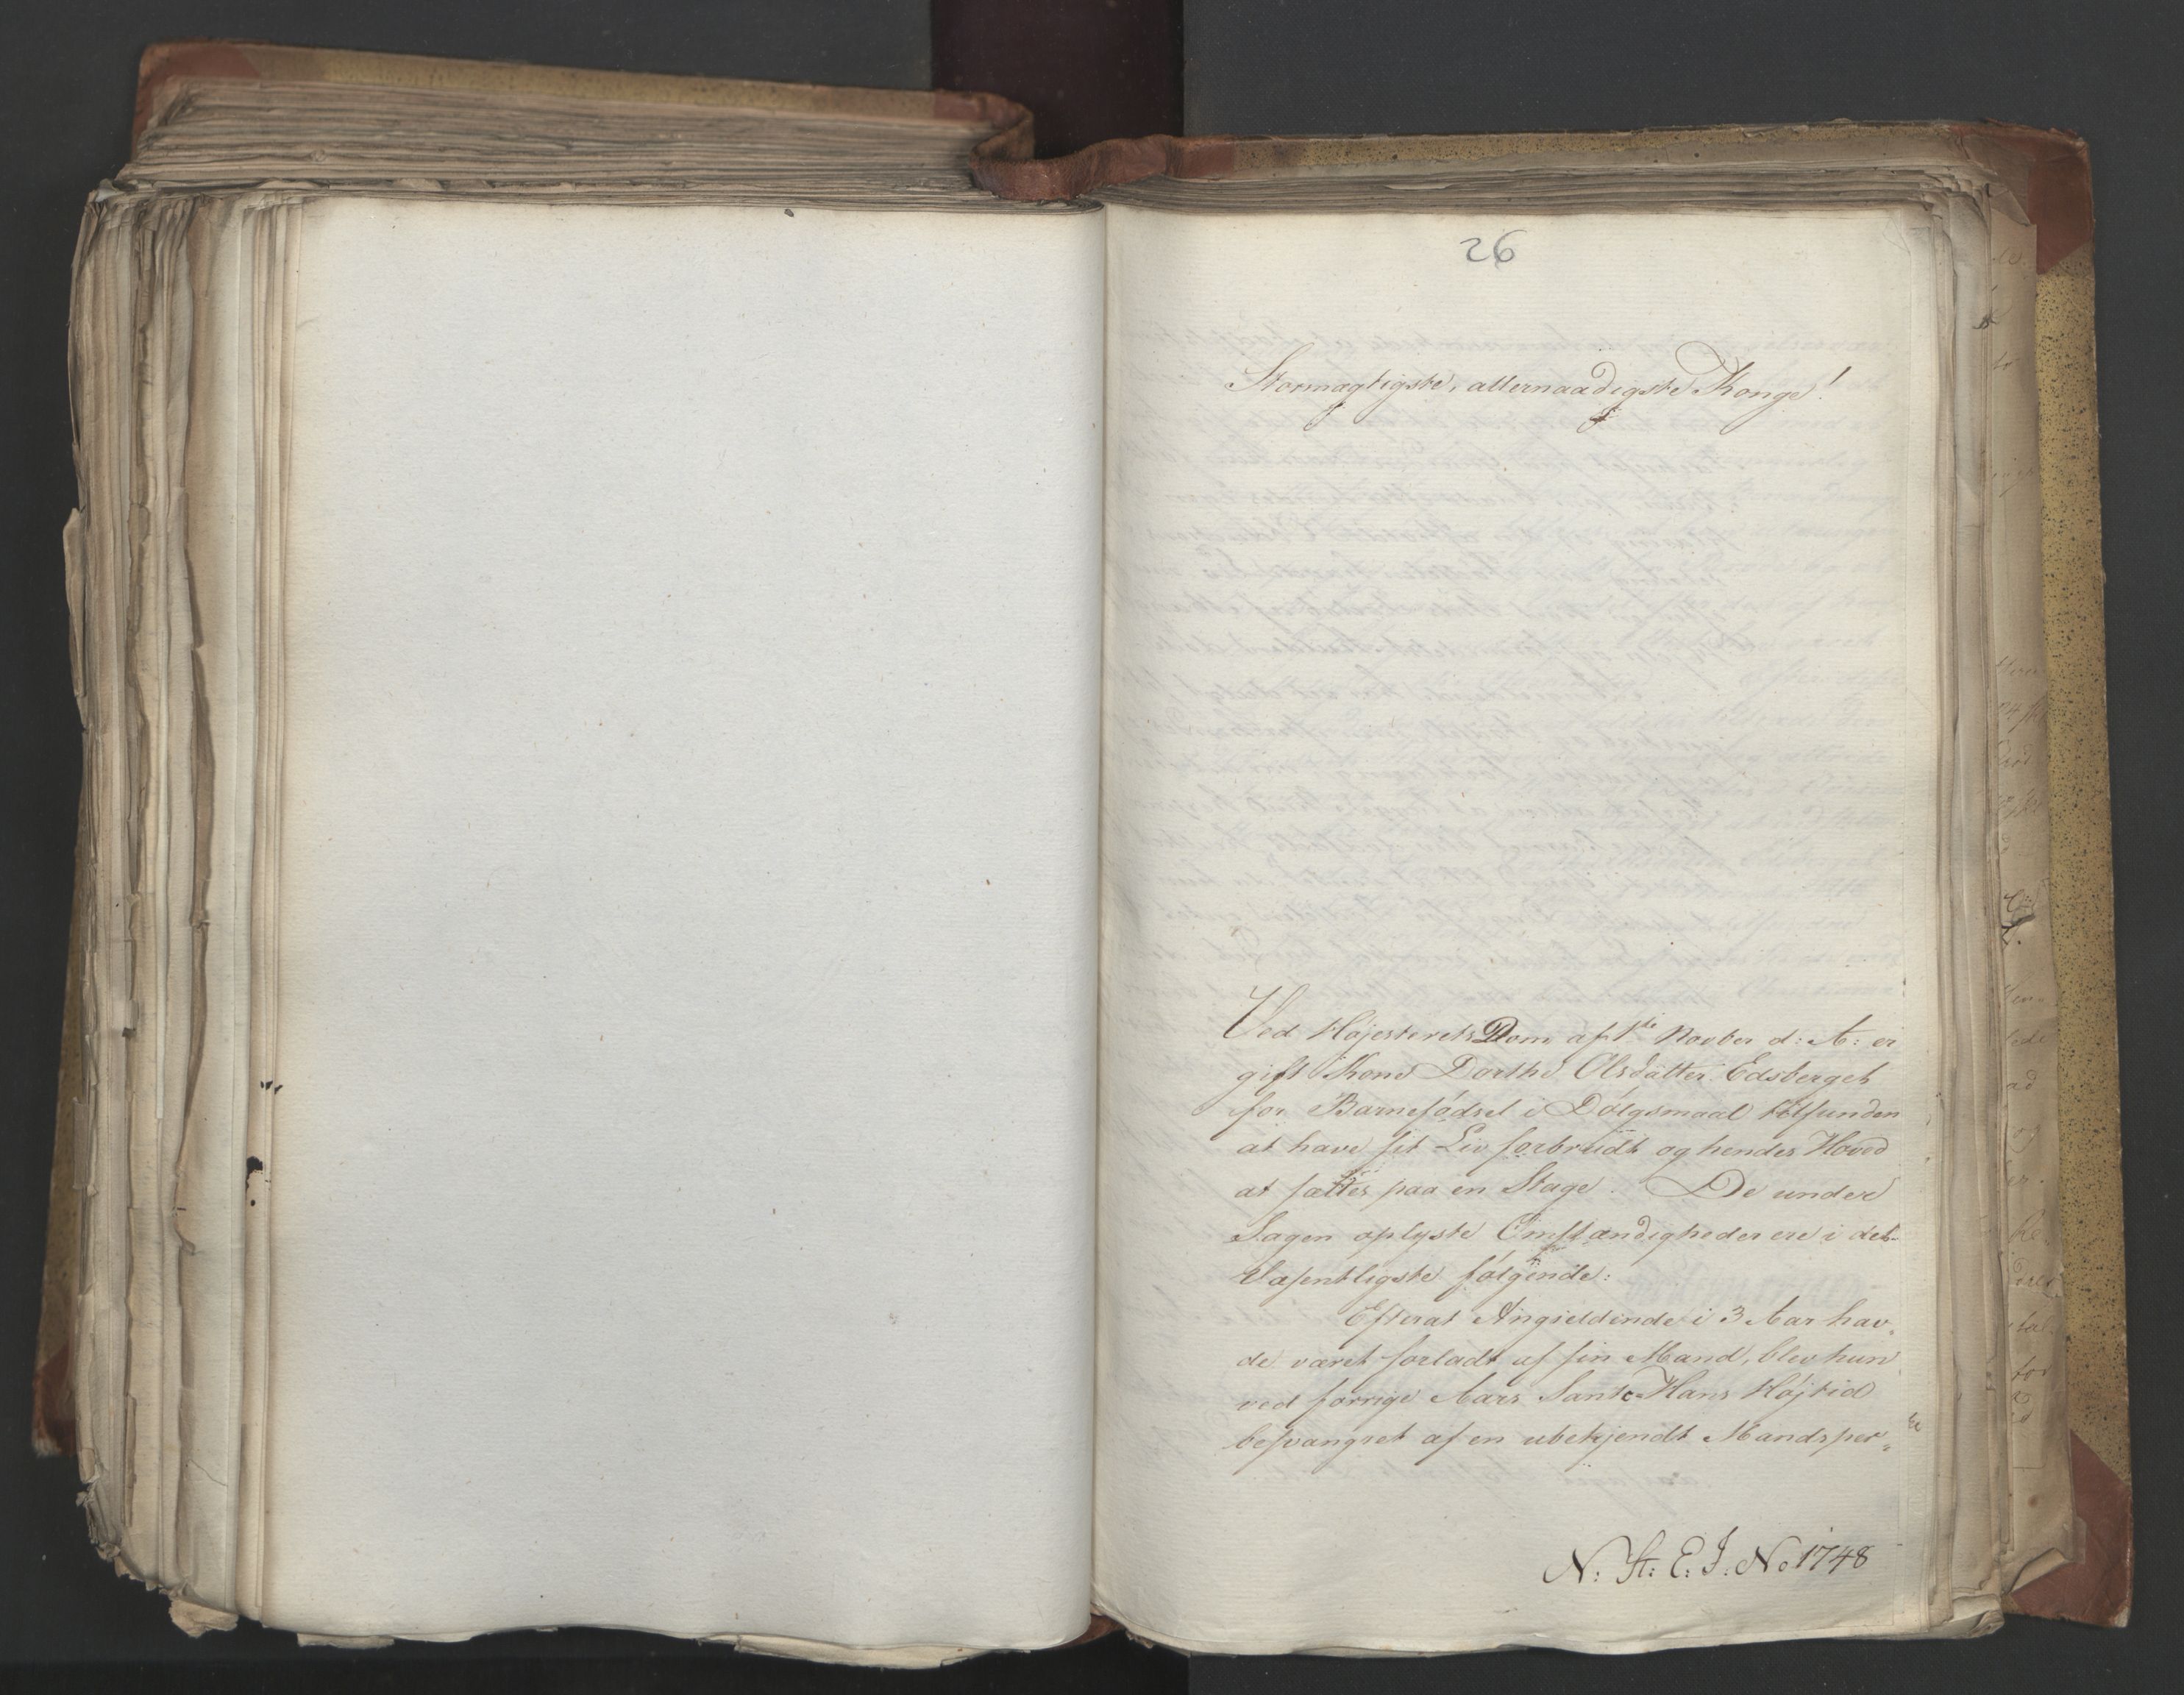 26
Stormægtigste, allernaadigste Konge!
Ved HøjesteretsDom af 1ste Novber d: A: er
gift Kone Dorthe Olsdatter Edsberget
for Barnefødsel i Dølgsmaal tilfunden
at have sit Liv forbrudt og hendes Hoved
at sættes paa en Stage. De under
Sagen oplyste Omstændigheder ere i det
Væsentligste følgende:
Efterat Angieldende i 3 Aar hav-
de været forladt af sin Mand, blev hun
ved forrige Aars Sanct Hans Højtid
besvangret af en ubekjendt Mandsper-
N: St: E: J. No 1748